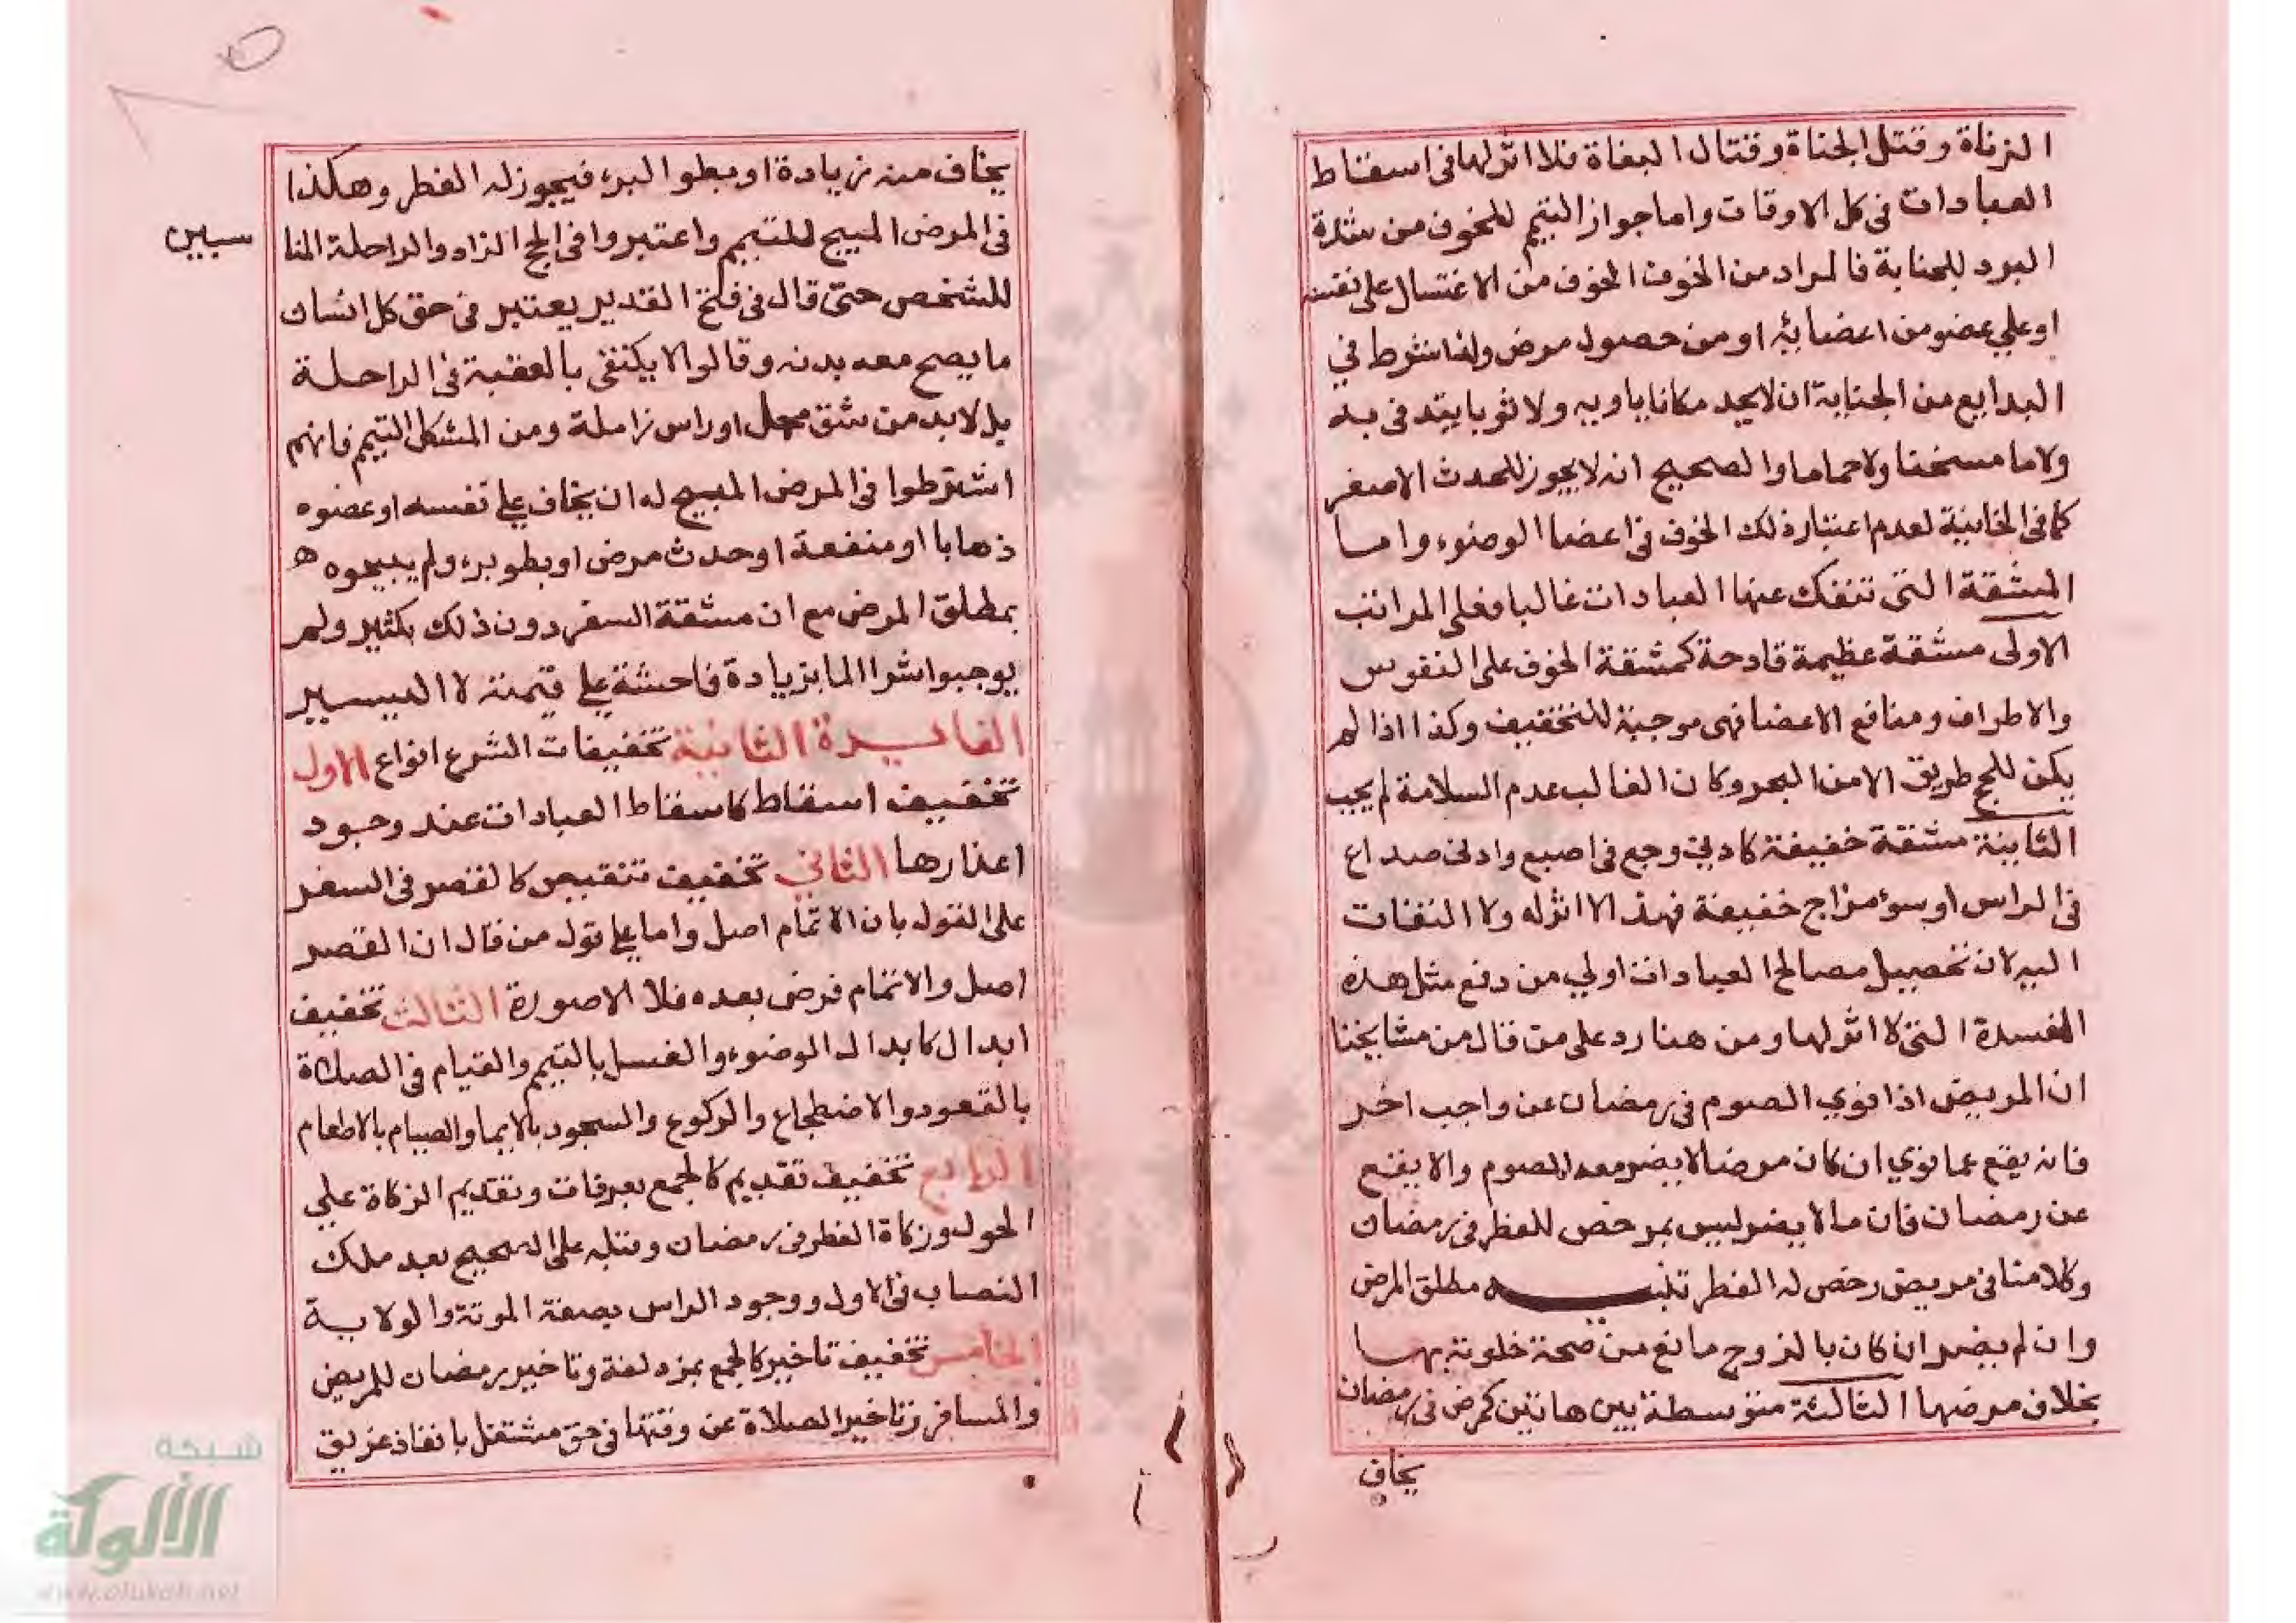 الزناة وقتل الجناة وقتال البغاة فلا اثر لها فى اسقاط
العبادات فى كل الاوقات واما جواز التيمم للخوف من شدة
البرد للجنابة فالمراد من الخوف الخوف من الاغتسال على نفسه
او على عضو من اعضائه او من حصول مرض ولذا شرط في
البدايع من الجنابة ان لا يجد مكانا ياويه ولا ثوبا يتدفى به
ولا ما مسخنا ولا حماما والصحيح انه لا يجوز للحدث الاصغر
كما فى الخانية لعدم اعتبار ذلك الخوف فى اعضا الوضوء واما
المشقة التى تنفك عنها العبادات غالبا فعلى المراتب
الاولى مشقة عظيمة قادحة كمشقة الخوف على النفوس
والاطراف ومنافع الاعضا فهى موجبة للتخفيف وكذا اذا لم
يكن للحج طريق الا من البحر وكان الغالب عدم السلامة لم يجب
الثانية مشقة خفيفة كادنى وجع فى اصبع وادنى صداع
فى الراس او سوء مزاج خفيفة فهذا لا اثر له ولا التفات
اليه لان تحصيل مصالح العبادات اولي من دفع مثل هذه
المفسدة التى لا اثر لها ومن هنا رد على من قال من مشايخنا
ان المريض اذا نوي الصوم فى رمضان عن واجب اخر
فانه يقع عما نوي ان كان مرضا لا يضر معه الصوم والا يقع
عن رمضان فان ما لا يضر ليس بمرخص للفطر فى رمضان
وكلامنا فى مريض رخص له الفطر تنبيه مطلق المرض
وان لم يضر ان كان بالزوج مانع من صحة خلوته بها
بخلاف مرضها الثالثة متوسطة بين هاتين كمرض فى رمضان
يخاف
يخاف منه زيادة او بطوا البرء فيجوز له الفطر وهكذا
فى المرض المبيح للتيمم واعتبروا فى الحج الزاد والراحلة المنا
سبين
للشخص حتى قال فى فتح القدير يعتبر فى حق كل انسان
ما يصح معه بدنه وقالوا لا يكتفى بالعقبة فى الراحلة
بل لا بد من شق محمل او راس زاملة ومن المشكل التيمم فانهم
اشترطوا فى المرض المبيح له ان يخاف على نفسه او عضوه
ذهابا او منفعة او حدث مرض او بطو برء ولم يبيحوه
بمطلق المرض مع ان مشقة السفر دون ذلك بكثير ولم
يوجبوا شرا الما بزيادة فاحشة على قيمته لا اليسير
الفايدة الثانية تخفيفات الشرع انواع الاول
تخفيف اسقاط كاسقاط العبادات عند وجود
اعذارها الثاني تخفيف تنقيص كالقصر فى السفر
على القول بان الاتمام اصل واما على قول من قال ان القصر
اصل والاتمام فرض بعده فلا الا صورة الثالث تخفيف
ابدال كابدال الوضوء والغسل بالتيمم والقيام فى الصلاة
بالقعود والاضطجاع والركوع والسجود بالايما والصيام بالاطعام
الرابع تخفيف تقديم كالجمع بعرفات وتقديم الزكاة على
الحول وزكاة الفطر فى رمضان وقبله على الصحيح بعد ملك
النصاب فى الاول ووجود الراس بصفة المونة والولاية
الخامس تخفيف تاخير كالجمع بمزدلفة وتاخير رمضان للمريض
والمسافر وتاخير الصلاة عن وقتها فى حق مشتغل بانقاذ غريق
شبكة
الألوكة
www.alukah.net